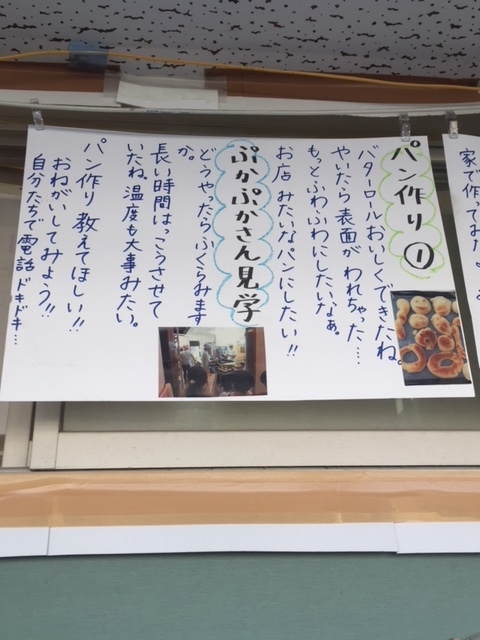 家で作ってみたよ
パン作り①
バターロールおいしくできたね。
やいたら表面がわれちゃった…
もっとふわふわにしたいなぁ。
お店みたいなパンにしたい!!
ぷかぷかさん見学
どうやったらふくらみます
か。
長い時間はっこうさせて
いたね。温度も大事みたい。
パン作り教えてほしい!!
おねがいしてみよう!!
自分たちで電話ドキドキ…